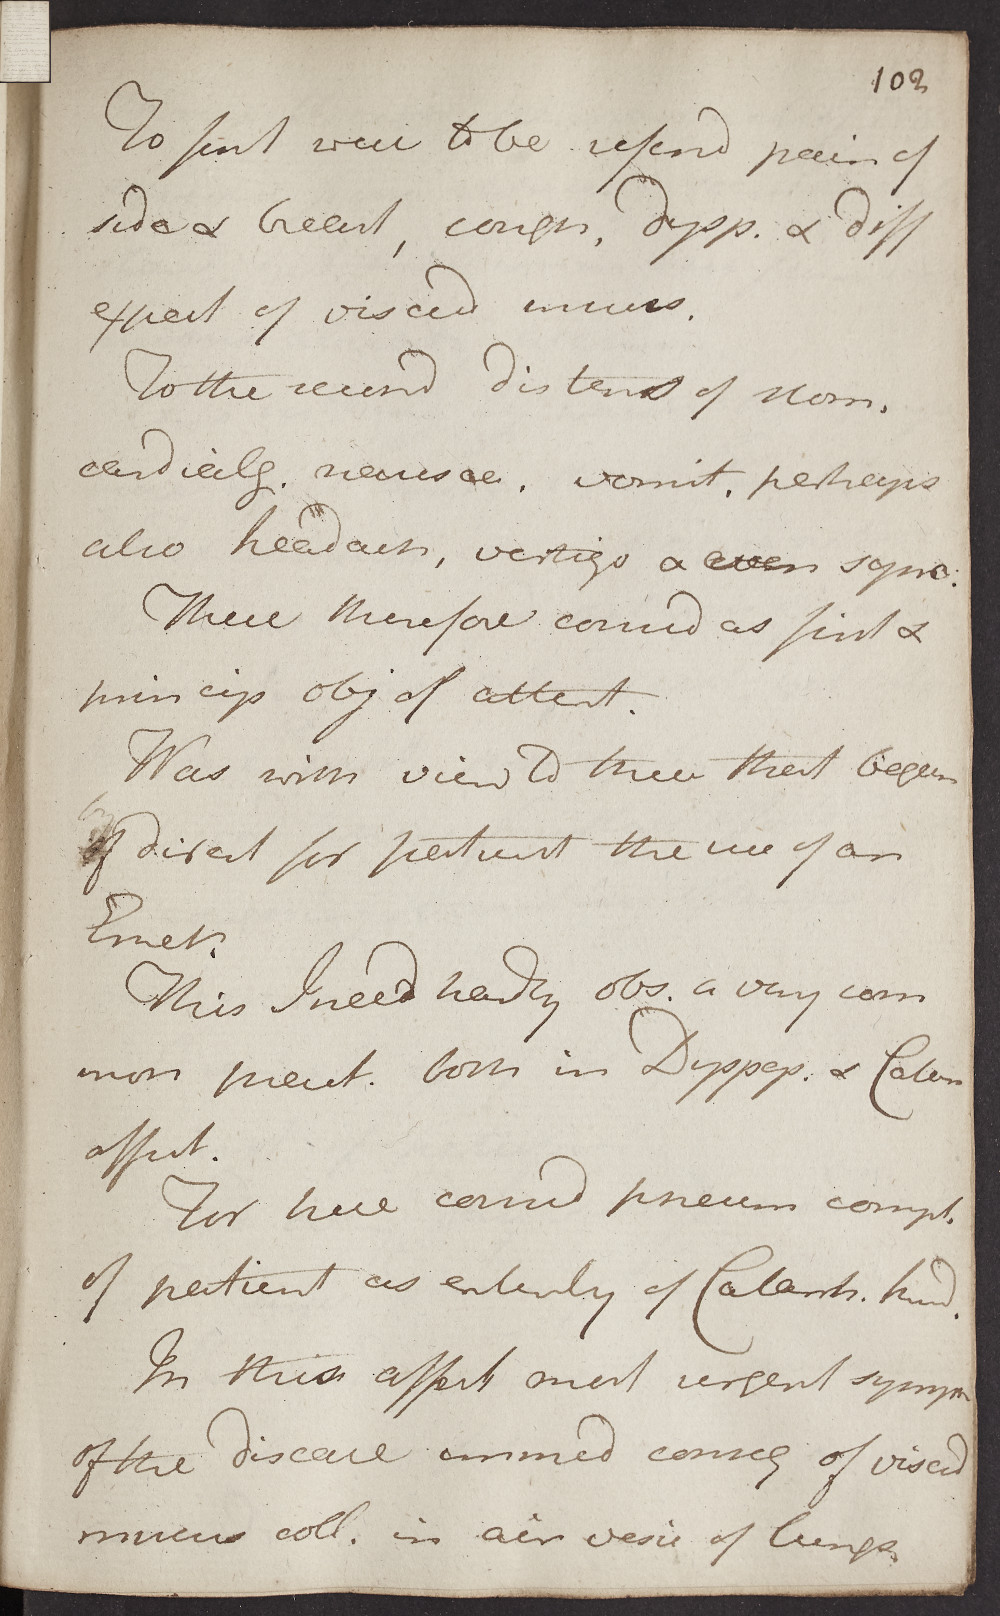 102
To first were to be referd pain of
side & breast, cough, dysp. & diff
expect of viscid mucus.
To the second distens of stom.
cardialg. nausea, vomit, perhaps
also headach, vertigo & even sync.
These therefore consid as first &
princip obj of attent.
Was with view to these that began
by direct for patient the use of an
Emet.
This I need hardly obs. a very com
mon pract. both in Dyspep. & Catarr
affect.
For here consid pneum compt.
of patient as entirely of Catarrh. kind.
In this affect most urgent symp
of the disease immed conseq of viscid
mucus coll. in air vesic of lungs